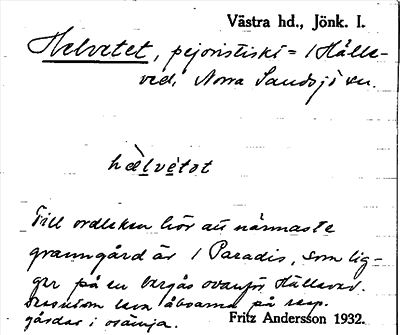 Västra hd., Jönk. l.
Helvetet, pejoristiskt = 1 Hälle-
ved, Norra Sandsjö sn.
hælvetot
Till ordleken hör att närmaste
granngård är 1 Paradis, som lig-
ger på en bergås ovanför Hälleved.
Dessutom leva åboarna på resp.
gårdar i osämja.
Fritz Andersson 1932.